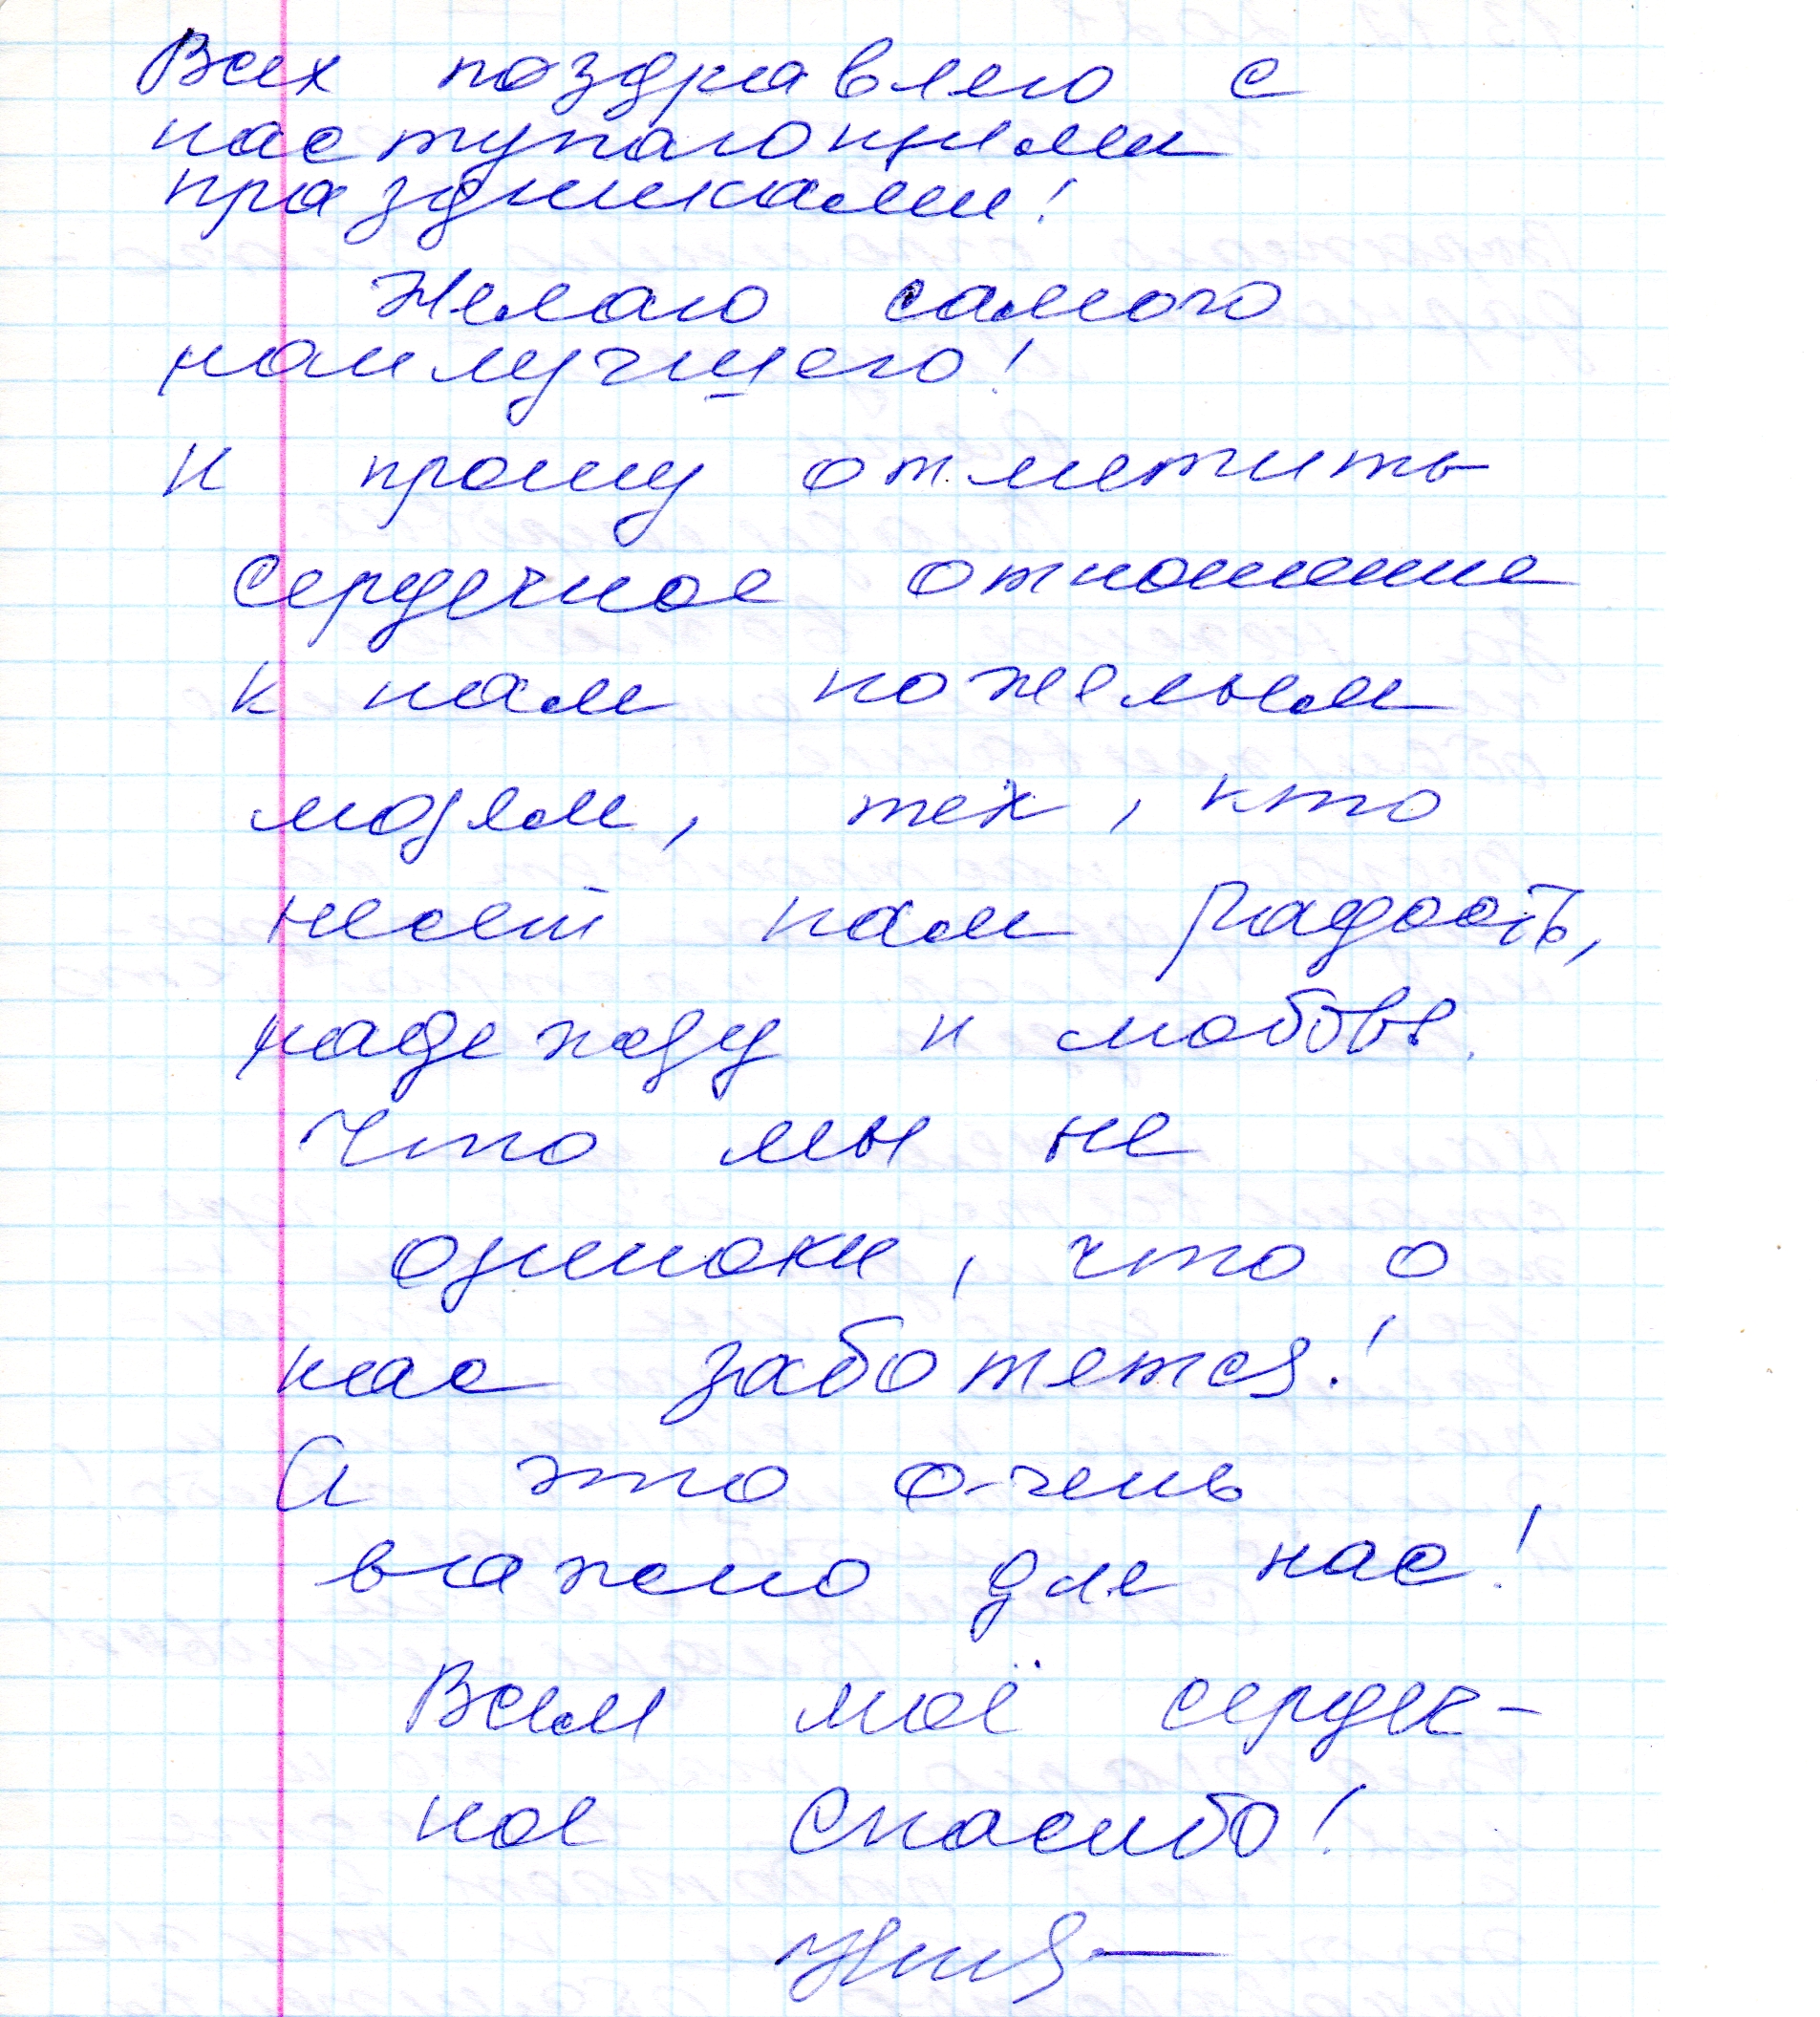 Всех поздравляю с
наступающими
праздниками!
Желаю самого
наилучшего!
И прошу отметить
сердечное отношение
к нам пожилым
людям, тех, кто
несет нам радость,
надежду и любовь.
Что мы не
одиноки, что о
нас заботятся!
А это очень
важно для нас!
Всем моё сердеч-
ное спасибо!